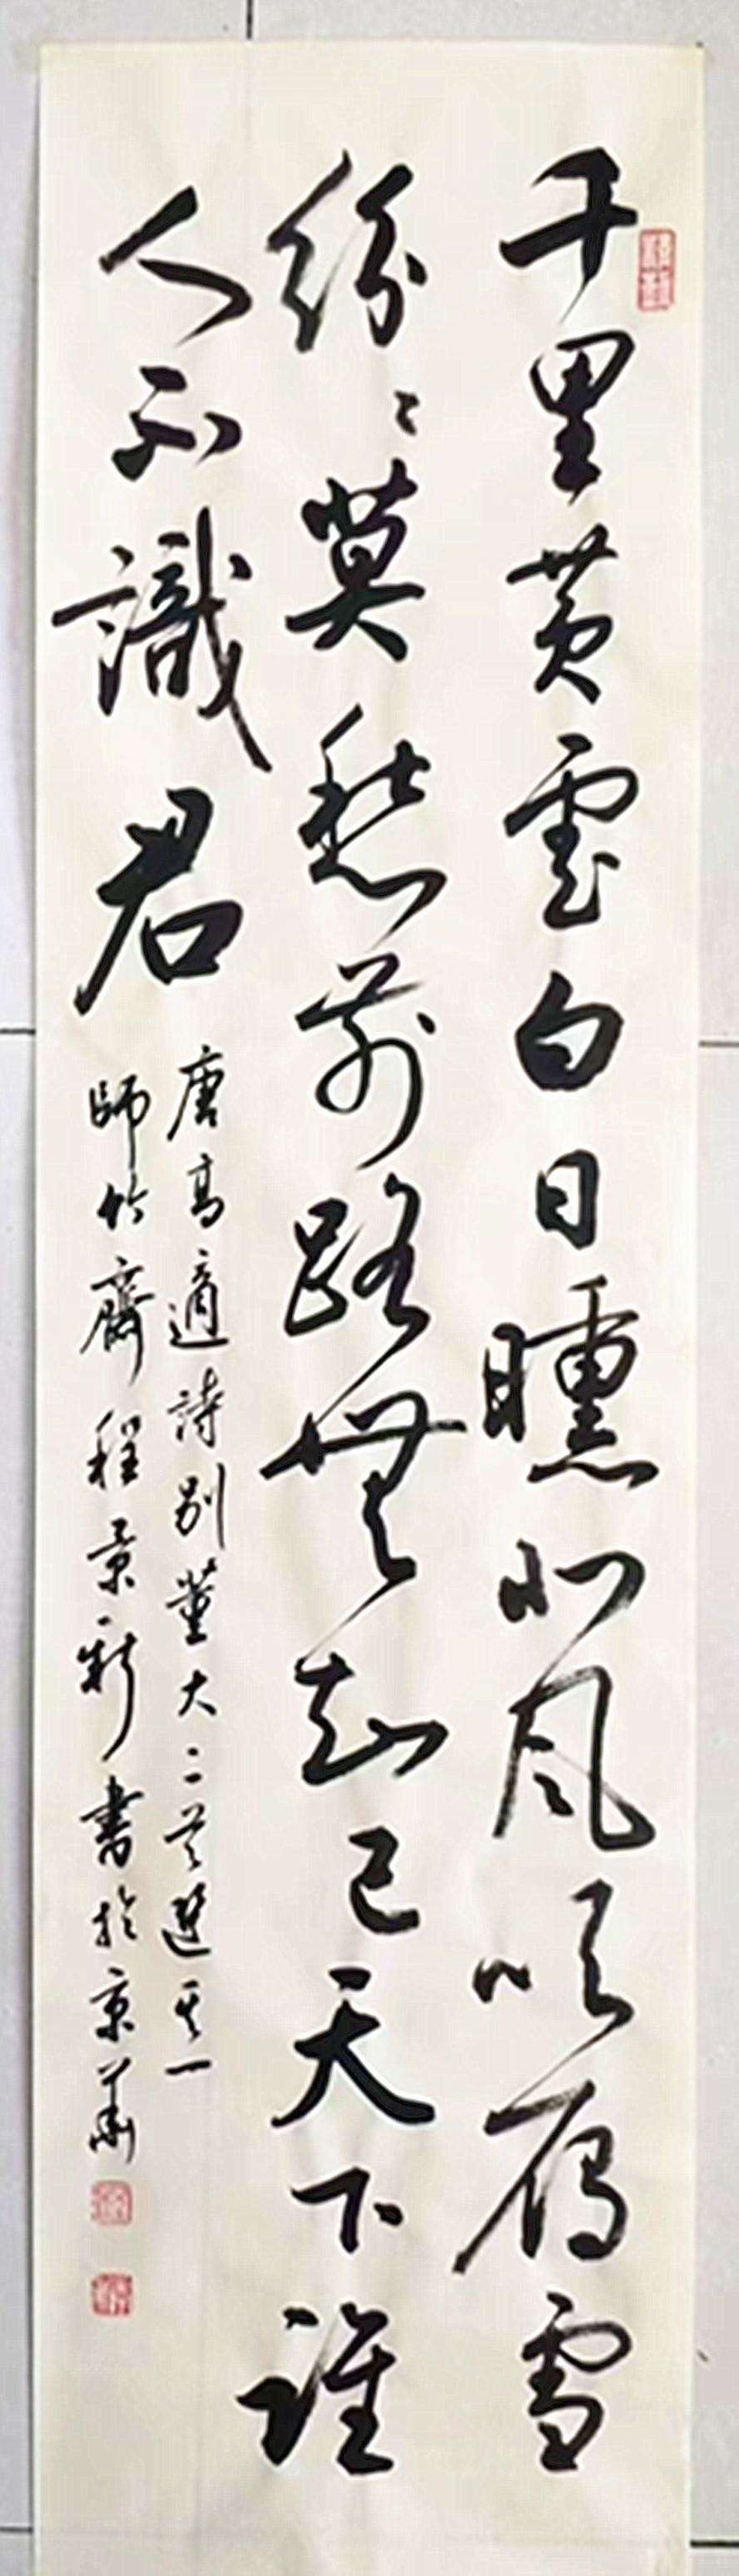 千里黄雲白日曛北風吹雁雪
紛〻莫愁前路無知己天下誰
人不識君
唐高適詩别董大二首選其一
師竹齋程景新書於京華